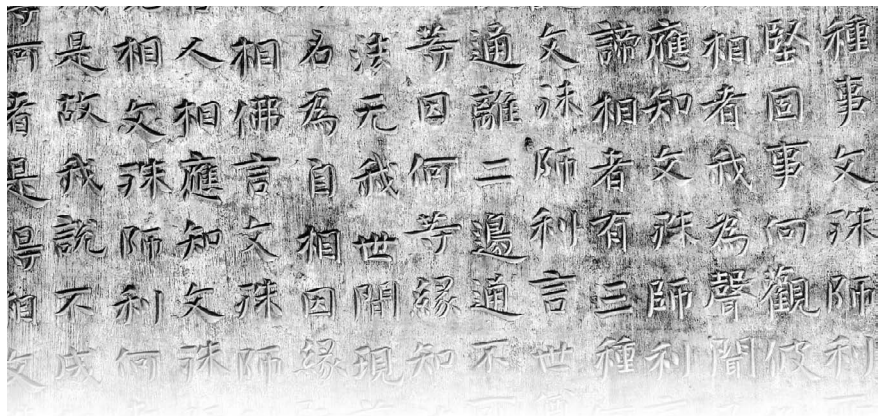 種事文殊師利
堅固事何觀彼
相者我為聲聞
應知文殊師利
諦相者有三種
文殊師利言世
通離二邊通不
等因何等緣知
法无我世間現
名為自相因緣
相佛言文殊師
人相應知文殊
相文殊師利何
是故我說不成
何者是得相文